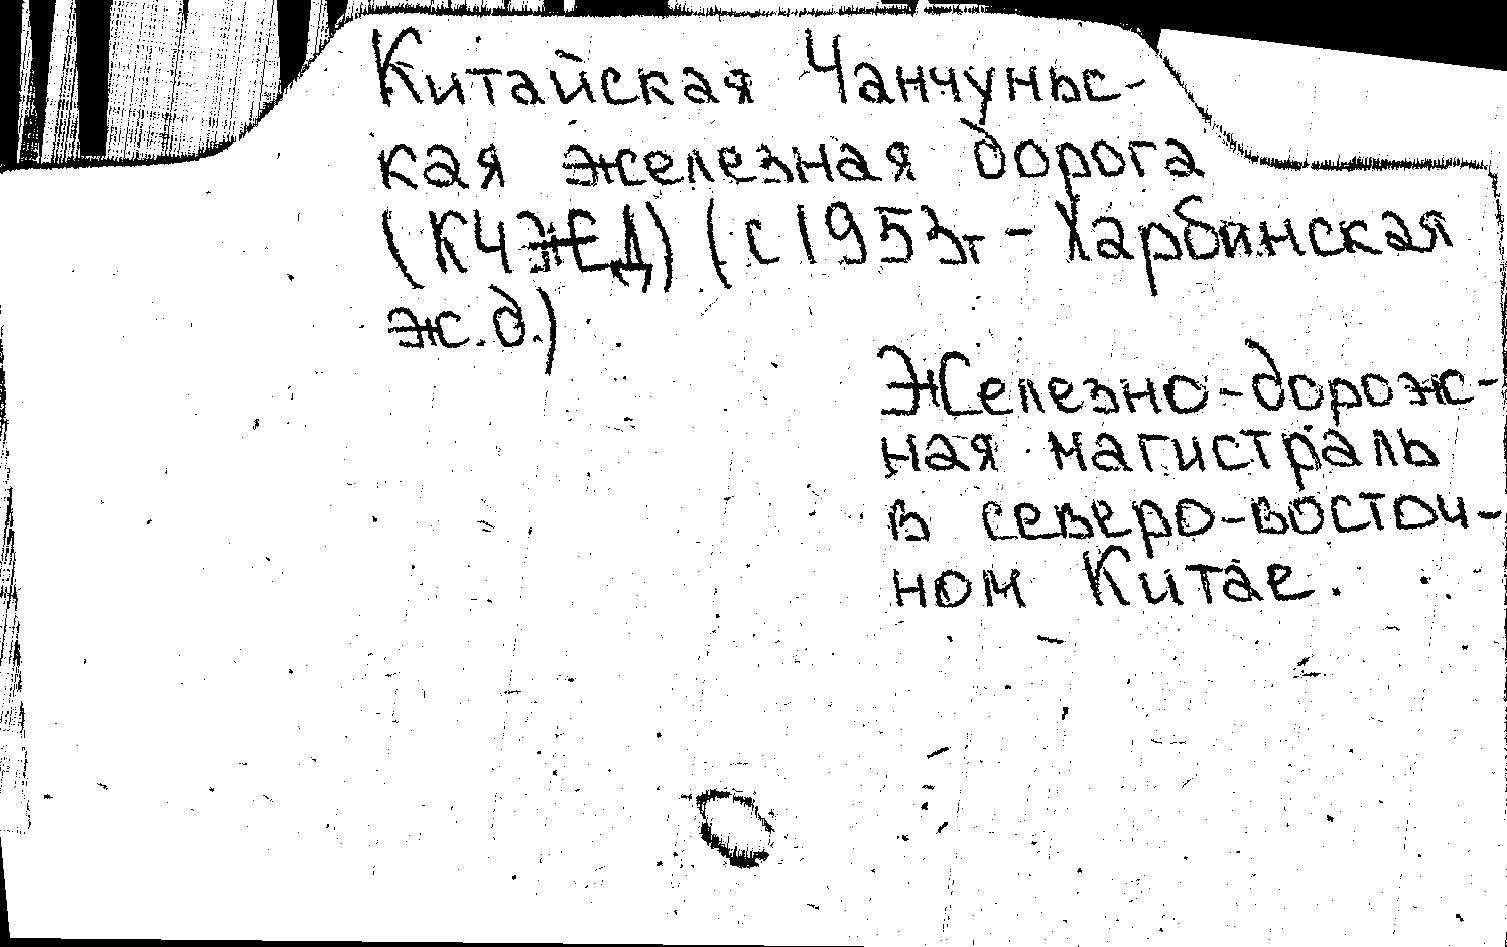 Китайская Чанчуньс-
кая железная дорога
(КЧЖД) (с 1953г – Харбинская
ж.д.)
Железно-дорож-
ная магистраль
в северо-восточ-
ном Китае.